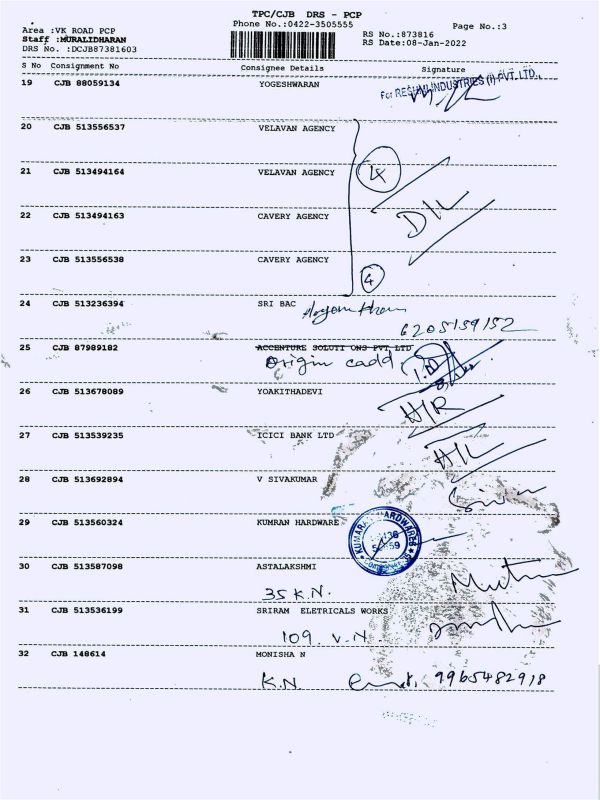 TPC/CJB DRS - PCP
Phone No.:0422-3505555
Page No.:3
Area :VK ROAD PCP
Staff :MURALIDHARAN
DRS No. :DCJB87381603
RS No.:873816
RS Date:08-Jan-2022
S No Consignment No Consignee Details Signature
19 CJB 88059134 YOGESHWARAN
For RESHMI INDUSTRIES (I) PVT. LTD.,
20 CJB 513556537 VELAVAN AGENCY
21 CJB 513494164 VELAVAN AGENCY
4
22 CJB 513494163 CAVERY AGENCY
D/L
23 CJB 513556538 CAVERY AGENCY
4
24 CJB 513236394 SRI BAC
6205159152
25 CJB 87989182 ACCENTURE SOLUTI ONS PVT LTD
Origin cadd
26 CJB 513678089 YOAKITHADEVI
H/R
27 CJB 513539235 ICICI BANK LTD
H/L
28 CJB 513692894 V SIVAKUMAR
29 CJB 513560324 KUMRAN HARDWARE
30 CJB 513587098 ASTALAKSHMI
35 K.N.
31 CJB 513536199 SRIRAM ELETRICALS WORKS
109. V.N
32 CJB 148614 MONISHA N
K.N 9965482918